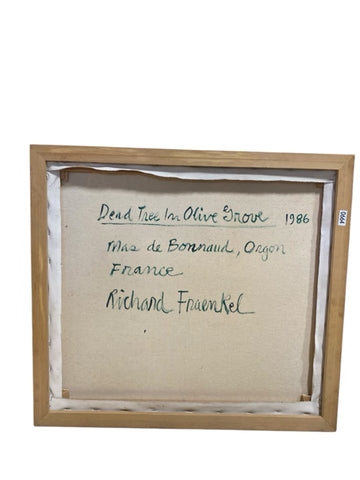 Dead Tree In Olive Grove 1986
Mas de Bonnaud, Orgon
France
Richard Fraenkel
0664